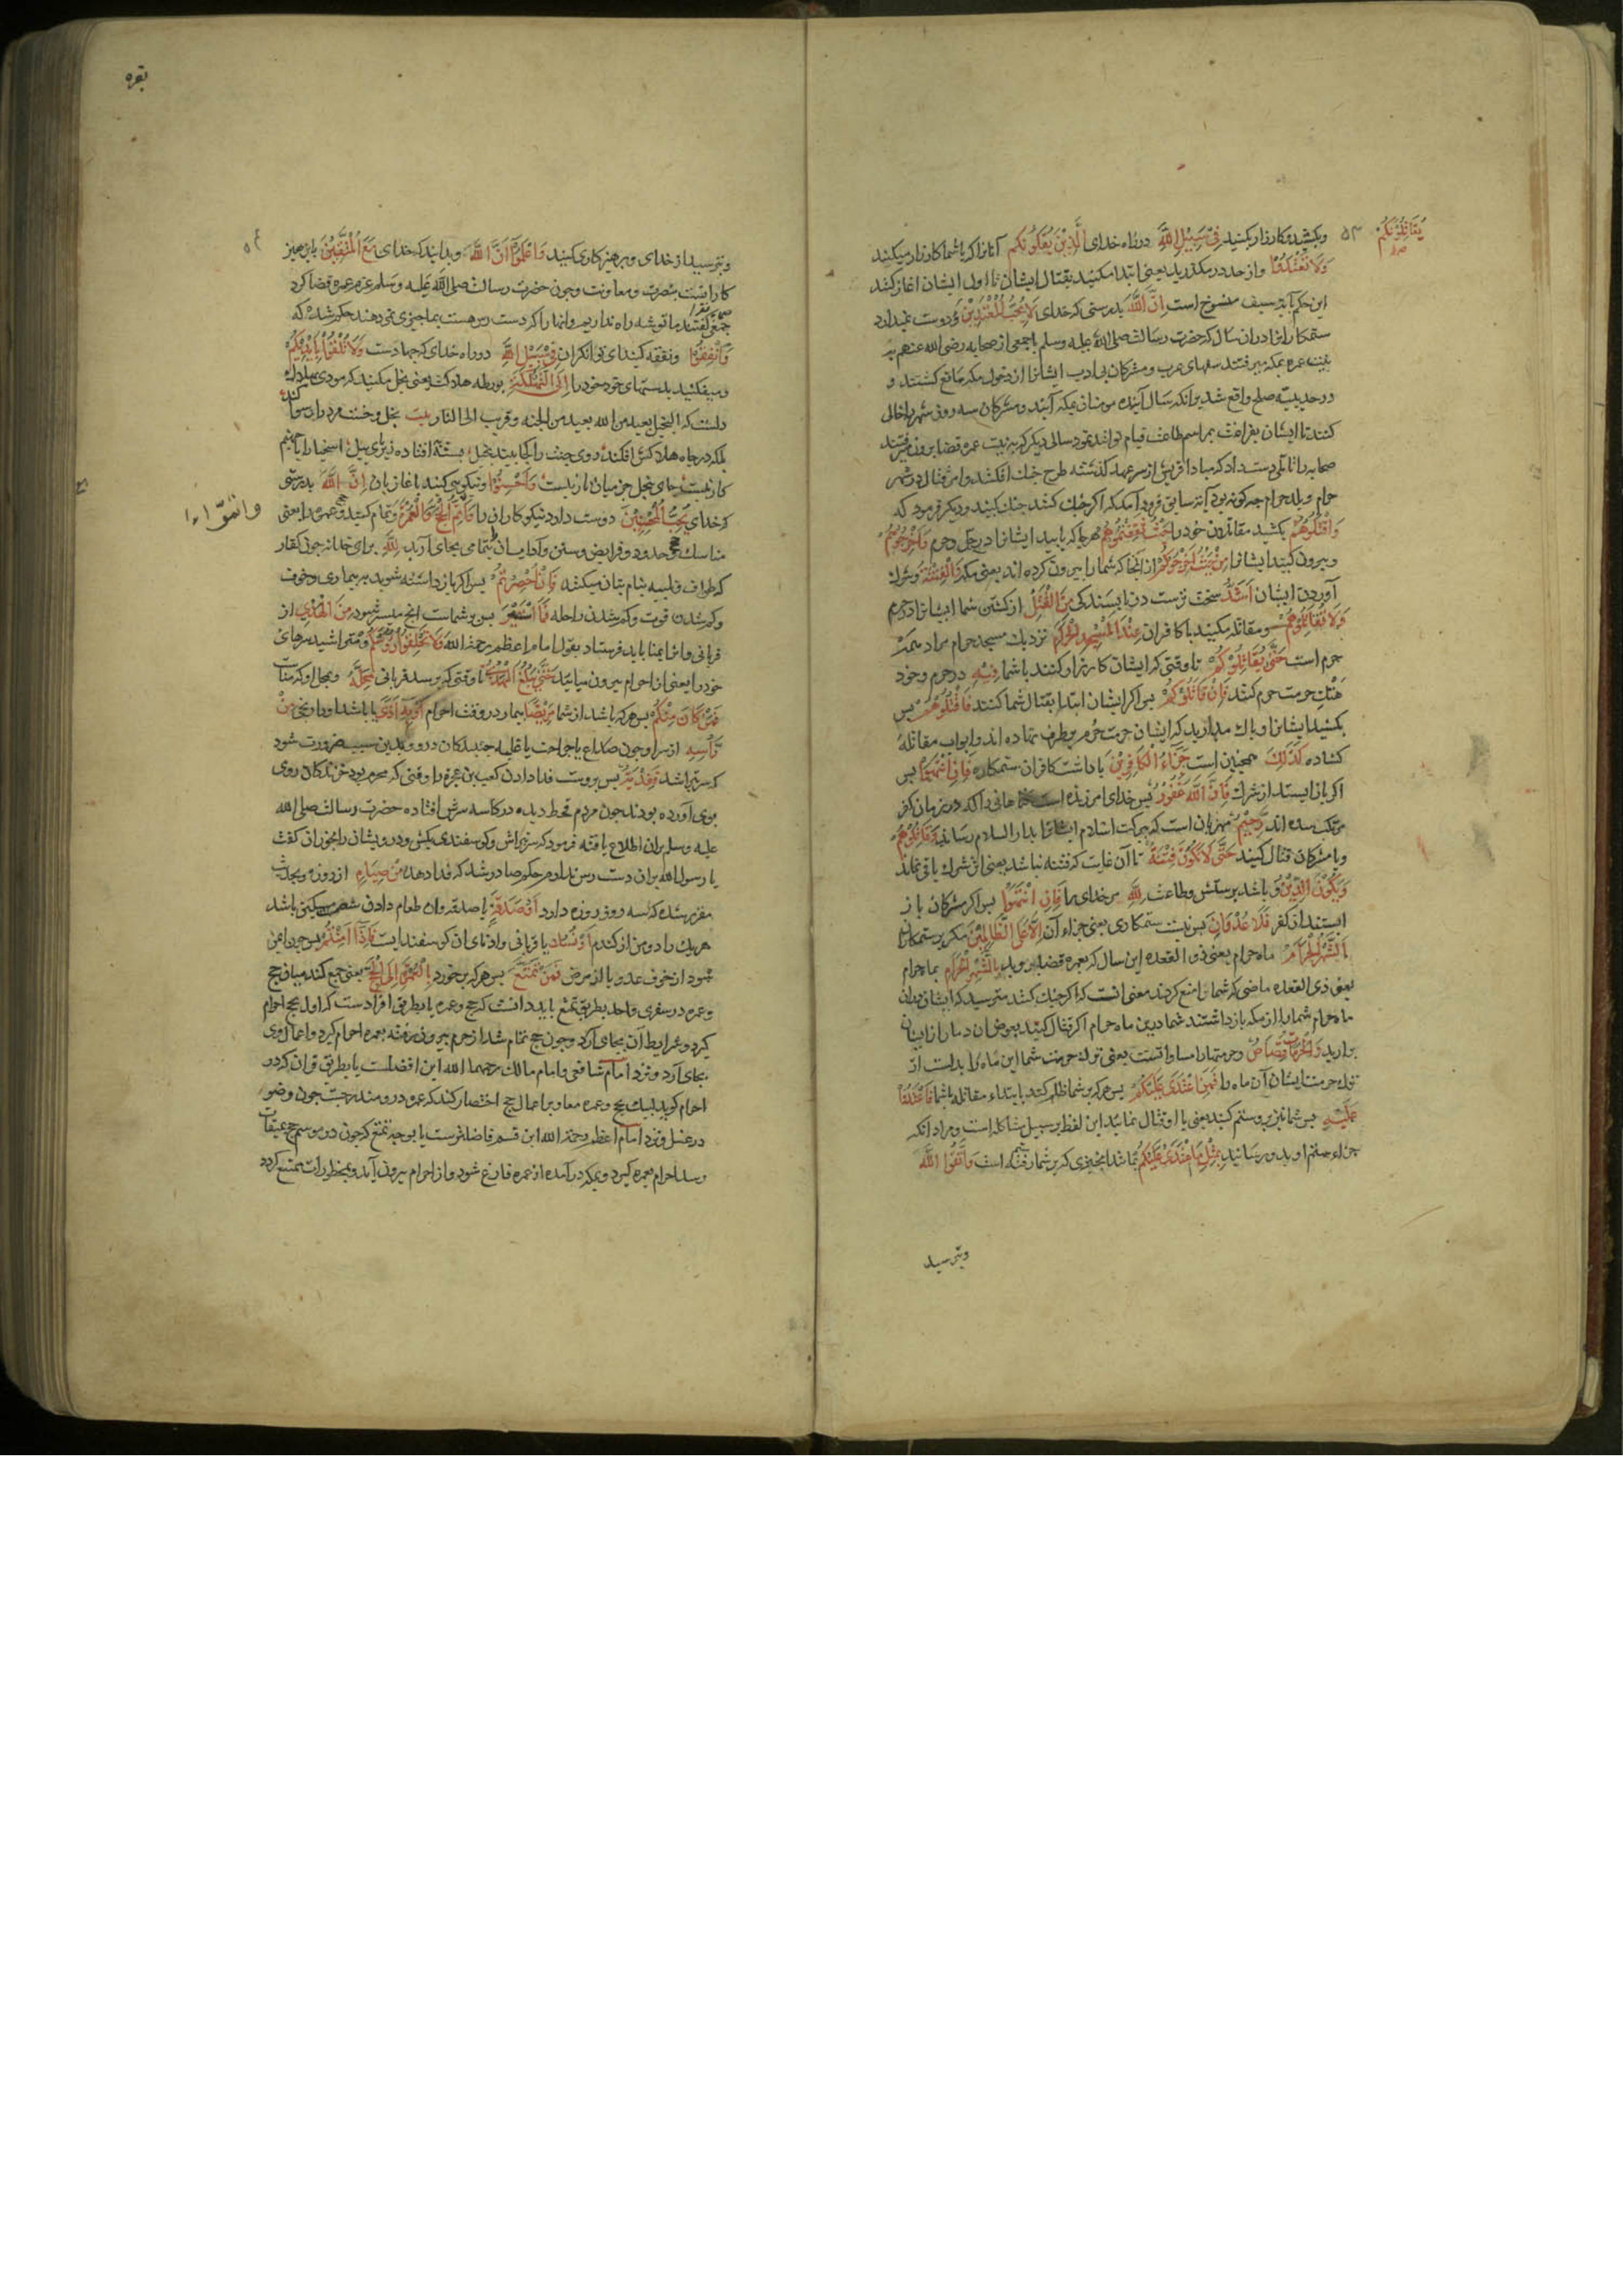 یُقَاتِلُوْنَکُمْ
۵۳
وبکشید وکارزار بکنید فِیْ سَبِیْلِ اللّٰهِ در راه خدای الَّذِیْنَ یُقَاتِلُوْنَکُمْ آنانرا که باشما کارزار میکنند
وَلَا تَعْتَدُوْا واز حد در مگذرید یعنی ابتدا مکنید بقتال ایشان تا اول ایشان اغاز کنند
این حکم بآیه سیف منسوخ است اِنَّ اللّٰهَ بدرستی که خدای لَا یُحِبُّ الْمُعْتَدِیْنَ دوست نمیدارد
ستمکارانرا دران سال که حضرت رسالت صلی الله علیه وسلم باجمعی از صحابه رضی الله عنهم به
نیت عمره بمکه میرفتند سفهای عرب ومشرکان بی ادب ایشانرا از دخول مکه مانع کشتند و
در حدیبیه صلح واقع شد برانکه سال آینده مومنان بمکه آیند ومشرکان سه روز شهر را خالی
کنند تا ایشان بفراغت بمراسم طاعت قیام توانند نمود سالی دیکر که به نیت عمره قضا برون میرفتند
صحابه را تاملی دست داد که مبادا قریش از سر عهد کذشته طرح جنك افکنند وامر قتال در شهر
حرام وبلد حرام چه کونه بود آیه سابق فرود آمد که اکر جنك کنند جنك کنید ودیکر فرمود که
وَاقْتُلُوْهُمْ بکشید مقاتلان خود را حَیْثُ ثَقِفْتُمُوْهُمْ هرجا که یابید ایشانرا در حل وحرم وَاَخْرِجُوْهُمْ
وبیرون کنید ایشانرا مِنْ حَیْثُ اَخْرَجُوْکُمْ از انجا که شمارا بیرون کرده اند یعنی مکه وَالْفِتْنَةُ وشرك
آوردن ایشان اَشَدُّ سخت ترست مِنَ الْقَتْلِ از کشتن شما ایشانرا در حرم
وَلَا تُقَاتِلُوْهُمْ ومقاتله مکنید باکافران عِنْدَ الْمَسْجِدِ الْحَرَامِ نزدیك مسجد حرام مراد همه
حرم است حَتّٰی یُقَاتِلُوْکُمْ تا وقتی که ایشان کارزار کنند باشما فِیْهِ در حرم وخود
هتك حرمت حرم کنند فَاِنْ قَاتَلُوْکُمْ پس اکر ایشان ابتدا بقتال شما کنند فَاقْتُلُوْهُمْ پس
بکشید ایشانرا وباك مدارید که ایشان حرمت حرم بر طرف نهاده اند وابواب مقاتله
کشاده کَذٰلِكَ همچنین است جَزَآءُ الْکَافِرِیْنَ پاداشت کافران ستمکاره فَاِنِ انْتَهَوْا پس
اکر باز ایستند از شرك فَاِنَّ اللّٰهَ غَفُوْرٌ پس خدای امرزنده است کناهانی را که در زمان کفر
مرتکب شده اند رَّحِیْمٌ مهربان است که ببرکت اسلام ایشانرا بدار السلام رساند وَقَاتِلُوْهُمْ
وبا مشرکان قتال کنید حَتّٰی لَا تَکُوْنَ فِتْنَةٌ تا آن غایت که فتنه نباشد یعنی اثر شرك باقی نماند
وَیَکُوْنَ الدِّیْنُ وباشد پرستش وطاعت لِلّٰهِ مر خدای را فَاِنِ انْتَهَوْا پس اکر مشرکان باز
ایستند از کفر فَلَا عُدْوَانَ پس نیست ستمکاری یعنی جزاء آن اِلَّا عَلَی الظَّالِمِیْنَ مکر بر ستمکاران
اَلشَّهْرُ الْحَرَامُ ماه حرام یعنی ذو القعده این سال که بعمره قضا میروید بِالشَّهْرِ الْحَرَامِ بماه حرام
یعنی ذی القعده ماضی که شمارا منع کردند معنی انست که اکر جنك کنند مترسید که ایشان دران
ماه حرام شمارا از مکه باز داشتند شما درین ماه حرام اکر قتال کنید بعوض ان دمار از ایشان
برارید وَالْحُرُمَاتُ قِصَاصٌ وحرمتهارا مساواتست یعنی ترك حرمت شما این ماه را بدلست از
ترك حرمت ایشان آن ماه را فَمَنِ اعْتَدٰی عَلَیْکُمْ پس هر که بر شما ظلم کند بابتداء مقاتله باشما فَاعْتَدُوْا
عَلَیْهِ پس شما نیز برو ستم کنید یعنی با او قتال نمائید این لفظ بر سبیل مشاکله است ومراد انکه
جزاء ستم او بدو رسانید بِمِثْلِ مَا اعْتَدٰی عَلَیْکُمْ بمانند انچیزی که بر شما رفته است وَاتَّقُوا اللّٰهَ
وبترسید
بقره
۵۴
وبترسید از خدای وپرهیزکاری کنید وَاعْلَمُوْا اَنَّ اللّٰهَ وبدانید که خدای مَعَ الْمُتَّقِیْنَ با پرهیز
کارانست بنصرت ومعاونت وچون حضرت رسالت صلی الله علیه وسلم عزم عمره قضا کرد
جمعی گفتند ما توشه راه نداریم وانهارا که دست رس هست بما چیزی نمی دهند حکم شد که
وَاَنْفِقُوْا ونفقه کنید ای توانکران فِیْ سَبِیْلِ اللّٰهِ در راه خدای که جهادست وَلَا تُلْقُوْا بِاَیْدِیْکُمْ
ومیفکنید بدستهای خود خود را اِلَی التَّهْلُکَةِ بورطه هلاکت یعنی بخل مکنید که مودی بهلاك
دلست که البخیل بعید من الله بعید من الجنه وقریب الی النار بیت بخل وخست مرد را رسوا کند
بلکه در چاه هلاکش افکند
کار نیست وَاَحْسِنُوْا ونیکویی کنید باغازیان اِنَّ اللّٰهَ بدرستی
واتمّوا
که خدای یُحِبُّ الْمُحْسِنِیْنَ دوست دارد نیکوکاران را وَاَتِمُّوا الْحَجَّ وَالْعُمْرَةَ وتمام کنید حج وعمره را یعنی
مناسك وحدود وفرایض وسنن وآداب بتمامی بجای آرید لِلّٰهِ برای خدا نه چون کفار
که طواف وتلبیه بنام بتان میکنند فَاِنْ اُحْصِرْتُمْ پس اکر باز داشته شوید به بیماری وخوف
وکم شدن قوت وکم شدن راحله فَمَا اسْتَیْسَرَ پس بر شماست انچه میسر شود مِنَ الْهَدْیِ از
قربانی وانرا بمنا باید فرستاد بقول امام اعظم رحمة الله وَلَا تَحْلِقُوْا رُءُوْسَکُمْ ومتراشید سرهای
خود را یعنی از احرام بیرون میایید حَتّٰی یَبْلُغَ الْهَدْیُ تا وقتی که برسد قربانی مَحِلَّهٗ بمحل او که مناست
فَمَنْ کَانَ مِنْکُمْ پس هر که باشد از شما مَرِیْضًا بیمار در وقت احرام اَوْ بِهٖ اَذًی یا باشد اورا رنجی مِنْ
رَّاْسِهٖ از سر او چون صداع یا جراحت یا غلبه جنبندکان درو وبدین سبب ضرورت شود
که سر بتراشد فَفِدْیَةٌ پس بروست فدا دادن کعب بن عجره را وقتی که محرم بود خزندکان روی
بوی آورده بودند چون مردم قحط دیده در کاسه سرش افتاده حضرت رسالت صلی الله
علیه وسلم بران اطلاع یافته فرمود که سر بتراش وکوسفندی بکش ودرویشان را بخوران کفت
یا رسول الله بران دست رس ندارم حکم صادر شد که فدا دهد مِّنْ صِیَامٍ از روزه وبحدیث
مقرر شده که سه روز روزه دارد اَوْ صَدَقَةٍ یا صدقه وان طعام دادن شش مسکین باشد
هر یك را دو من از کندم اَوْ نُسُكٍ یا قربانی وادنای ان کوسفندیست فَاِذَا اَمِنْتُمْ پس چون ایمن
شوید از خوف عدو یا از مرض فَمَنْ تَمَتَّعَ پس هر که برخورد بِالْعُمْرَةِ اِلَی الْحَجِّ یعنی جمع کند میان حج
وعمره در سفری واحد بطریق تمتع باید دانست که حج وعمره یا بطریق افرادست که اول بحج احرام
کیرد وشرایط آن بجای آرد وچون حج تمام شد از حرم بیرون رفته بعمره احرام کیرد واعمال وی
بجای آرد ونزد امام شافعی وامام مالك رحمهما الله این افضلست یا بطریق قران که در
احرام کوید لبیك بحج وعمره معا وبر اعمال حج اختصار کند که عمره درو مندرجست چون وضو
در غسل ونزد امام اعظم رحمة الله این قسم فاضلترست یا بوجه تمتع که چون در موسم حج بمیقات
رسد احرام بعمره کیرد وبمکه درآمده از عمره فارغ شود واز احرام بیرون آید وبمحظورات متمتع کردد